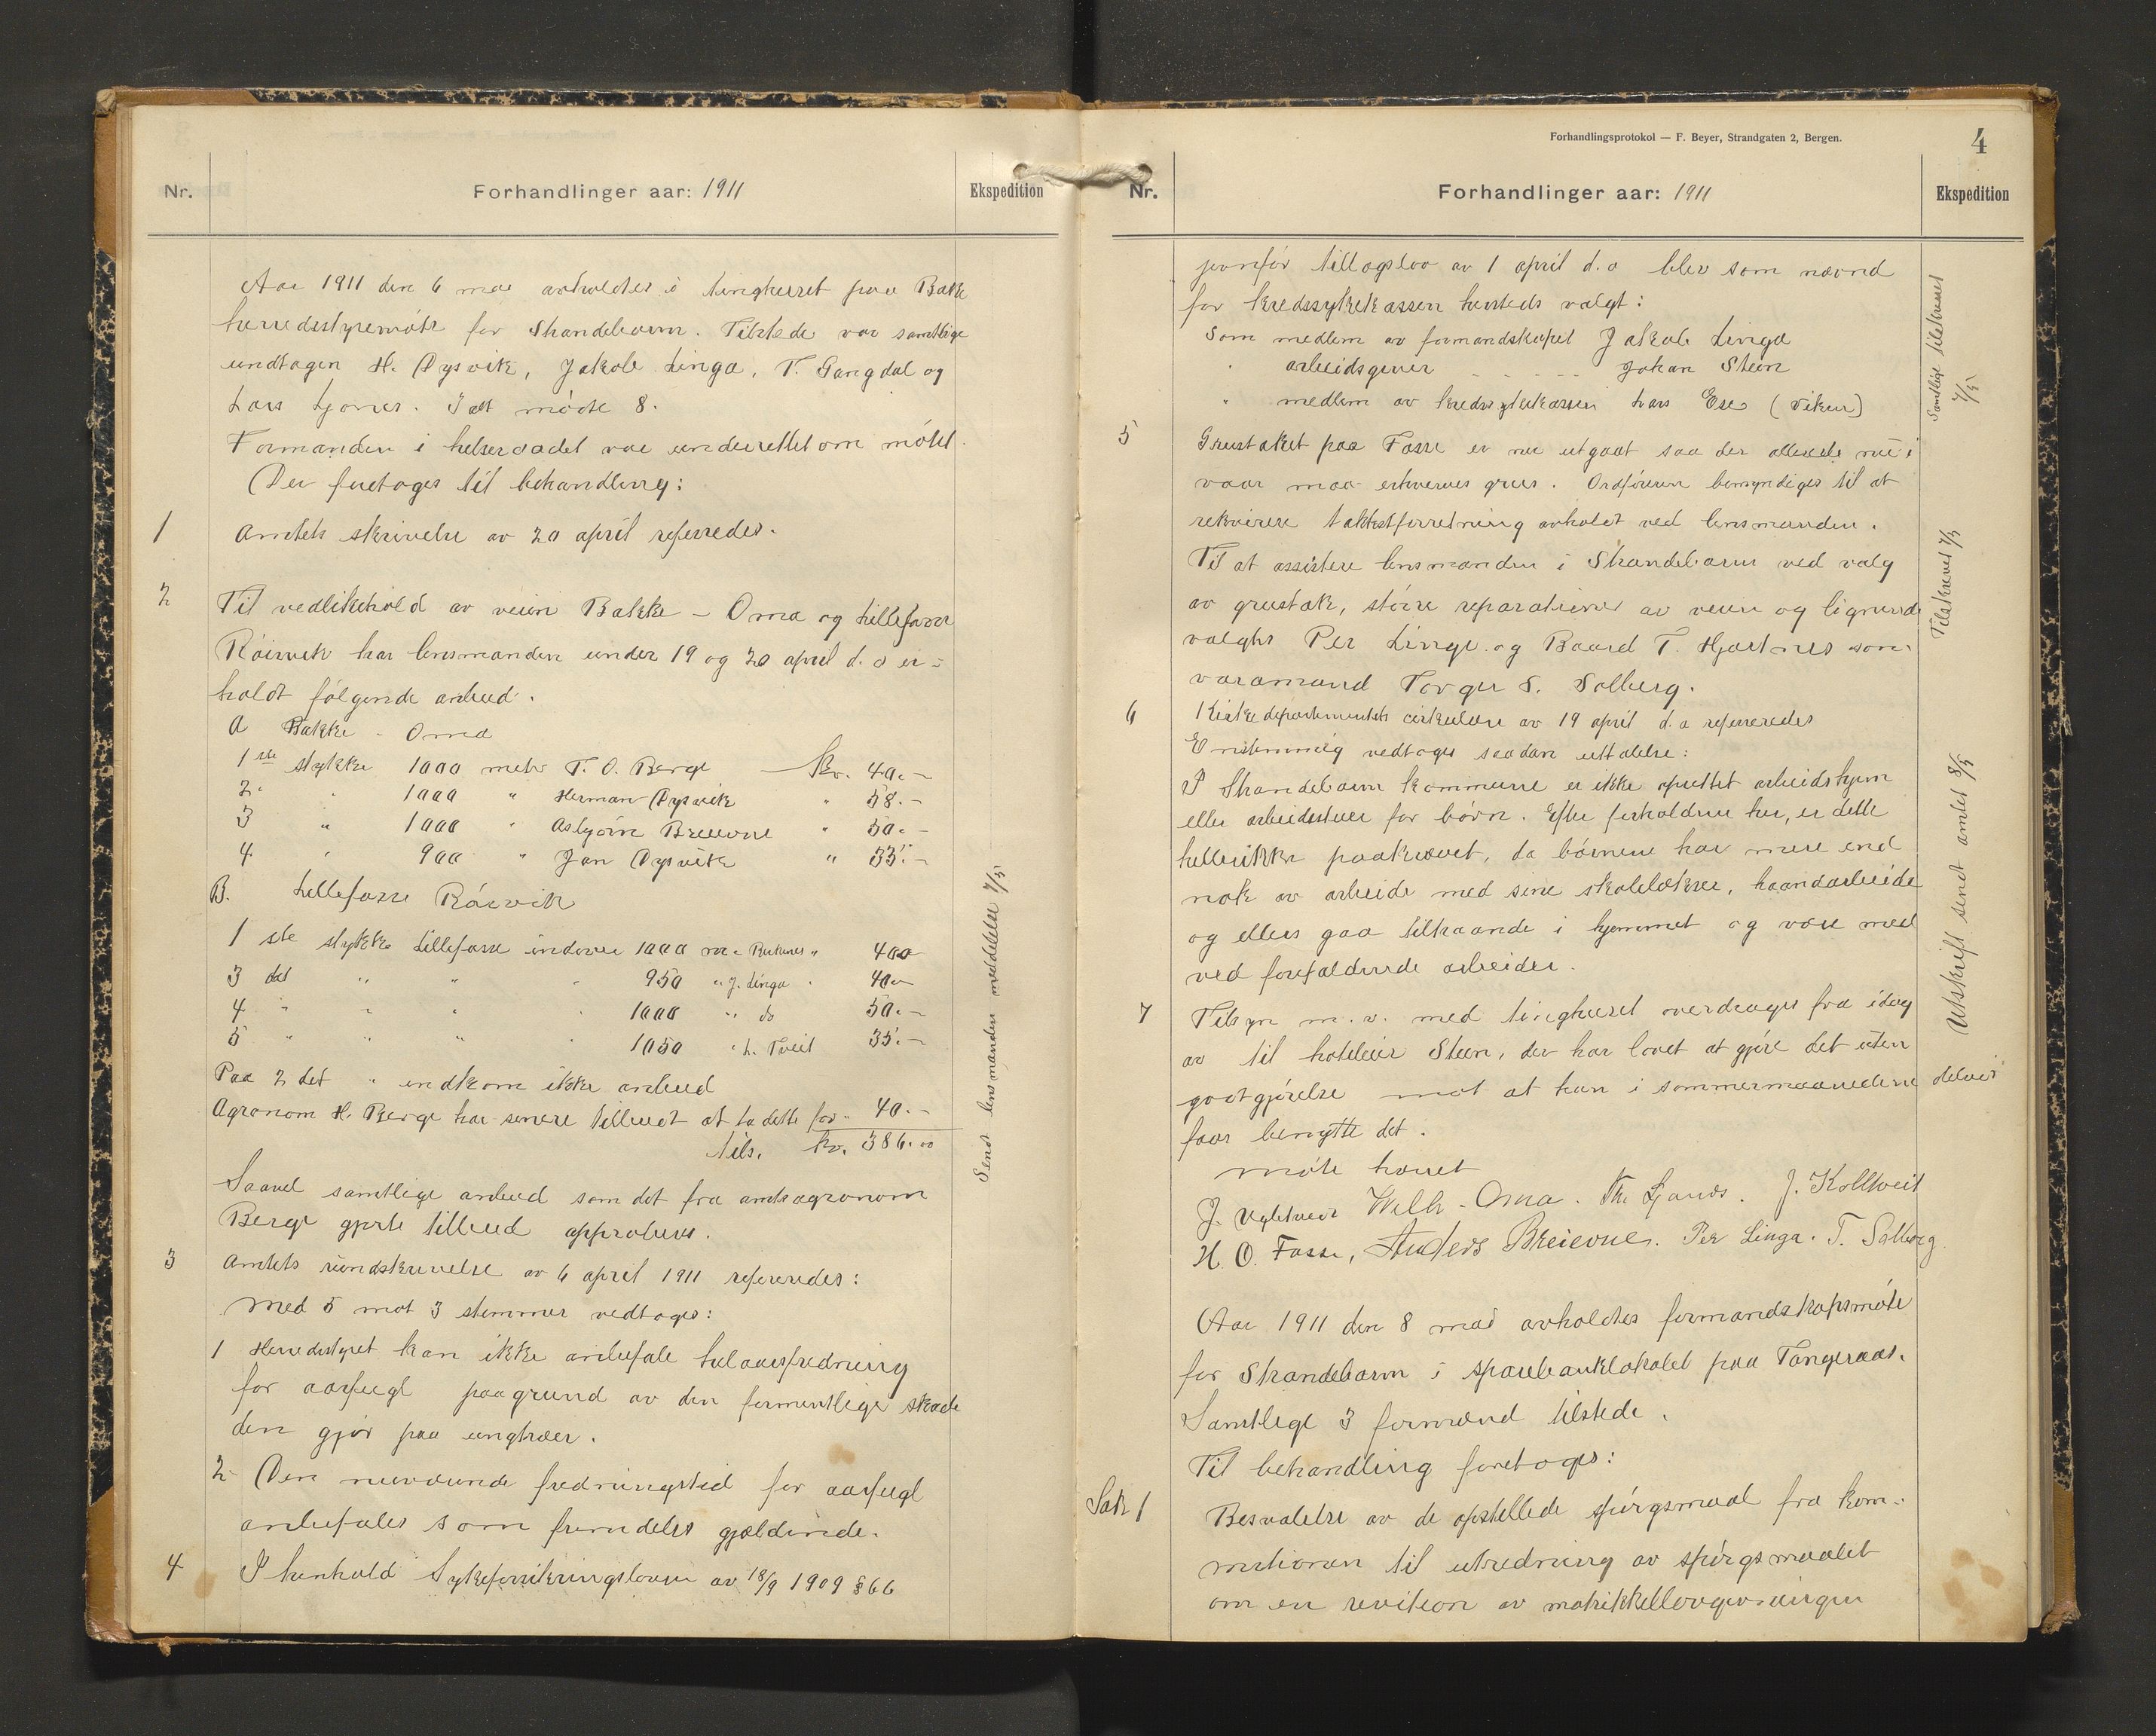 Nr.
Forhandlinger aar: 1911
Ekspedition
Aar 1911 den 6 mai avholdtes i tinghuset paa Bakke
herredsstyremøte for Strandebarm. Tilstede var samtlige
undtagen H. Dysvik, Jakob Linga, T. Gangdal og
Lars Ljones. I alt møtte 8.
Formanden i helseraadet var underrettet om møtet.
Der foretoges til behandling:
1 Amtets skrivelse av 20 april referredes.
2 Til vedlikehold av veien Bakke – Oma og Lillefosse
Röisvik har lensmanden under 19 og 20 april d. a er=
holdt følgende anbud.
A Bakke - Oma
1ste stykke 1000 meter T. O. Berge Kr. 40.–
2 " 1000 " Herman Dysvik " 58.–
3 " 1000 " Asbjörn Breievne " 50.–
4 " 900 " Jan Dysvik " 33.–
B. Lillefosse Röisvik
1 ste stykke Lillefosse indover 1000 m. " 40.–
3 det " " " 950 " J. Linga " 40.–
4 " " " " 1000 " do 50.–
5 " " " " 1050 " L. Tveit 35.–
Paa 2 det " indkom ikke anbud
Agronom H. Berge har senere tilbudt at ta dette for " 40.–
tils. kr. 386.00
Saavel samtlige anbud som det fra amtsagronom
Berge gjorte tilbud approberes.
3 Amtets rundskrivelse av 6 april 1911 refereredes:
Med 5 mot 3 stemmer vedtoges:
1 Herredsstyret kan ikke anbefale helaarsfredning
for aarfugl paagrund av den formentlige skade
den gjør paa ungtrær.
2 Den nuværende fredningstid for aarfugl
anbefales som fremdeles gjældende.
4 I henhold Sykeforsikringsloven av 18/9 1909 § 66
Sendt lensmanden meddelelse 7/5
Forhandlingsprotokol — F. Beyer, Strandgaten 2, Bergen.
4
Nr.
Forhandlinger aar: 1911
Ekspedition
jevnfør tillægslov av 1 april d. a blev som nævnd
for kredssykekassen hersteds valgt:
Som medlem av formandskapet Jakob Linga
" arbeidsgiver - - - - - Johan Steen
" medlem av kredssykekassen Lars Ese (Viken)
5 Grustaket paa Fosse er nu utgaat saa der allerede nu i
vaar maa erhverves grus. Ordføreren bemyndiges til at
rekvirere takstforretning avholdt ved lensmanden.
Til at assistere lensmanden i Strandebarm ved valg
av grustak, större reparationer av veien og lignende
valgtes Per Linge og Baard T. Hjartnes som
varamand Torger S. Solberg.
6 Kirkedepartementets cirkulære av 19 april d. a refereredes
Enstemmig vedtoges saadan uttalelse:
I Strandebarm kommune er ikke oprettet arbeidshjem
eller arbeidsstuer for børn. Efter forholdene her, er dette
hellerikke paakrævet, da börnene har mere end
nok av arbeide med sine skolelækser, haandarbeide
og ellers gaa tilhaande i hjemmet og være med
ved forefaldende arbeider.
7 Tilsyn m. v. med tinghuset overdrages fra idag
av til hoteleier Steen, der har lovet at gjöre det uten
godtgjörelse mot at han i sommermaanederne delvis
faar benytte det.
Møte hævet
J. Vgletveit Welh. Oma. Th. Ljones. J. Kolltveit
H. O. Fosse, Anders Breievne. Per Linga. T. Solberg
Aar 1911 den 8 mai avholdtes formandskapsmöte
for Strandebarm i sparebanklokalet paa Tangeraas.
Samtlige 3 formænd tilstede.
Til behandling foretoges:
Sak 1 Besvarelse av de opstillede spörgsmaal fra kom=
missionen til utredning av spörgsmaalet
om en revision av matrikkellovgivningen
Samtlige tilskrevet 7/5
Tilskrevet 7/5
Utskrift sendt amtet 8/5